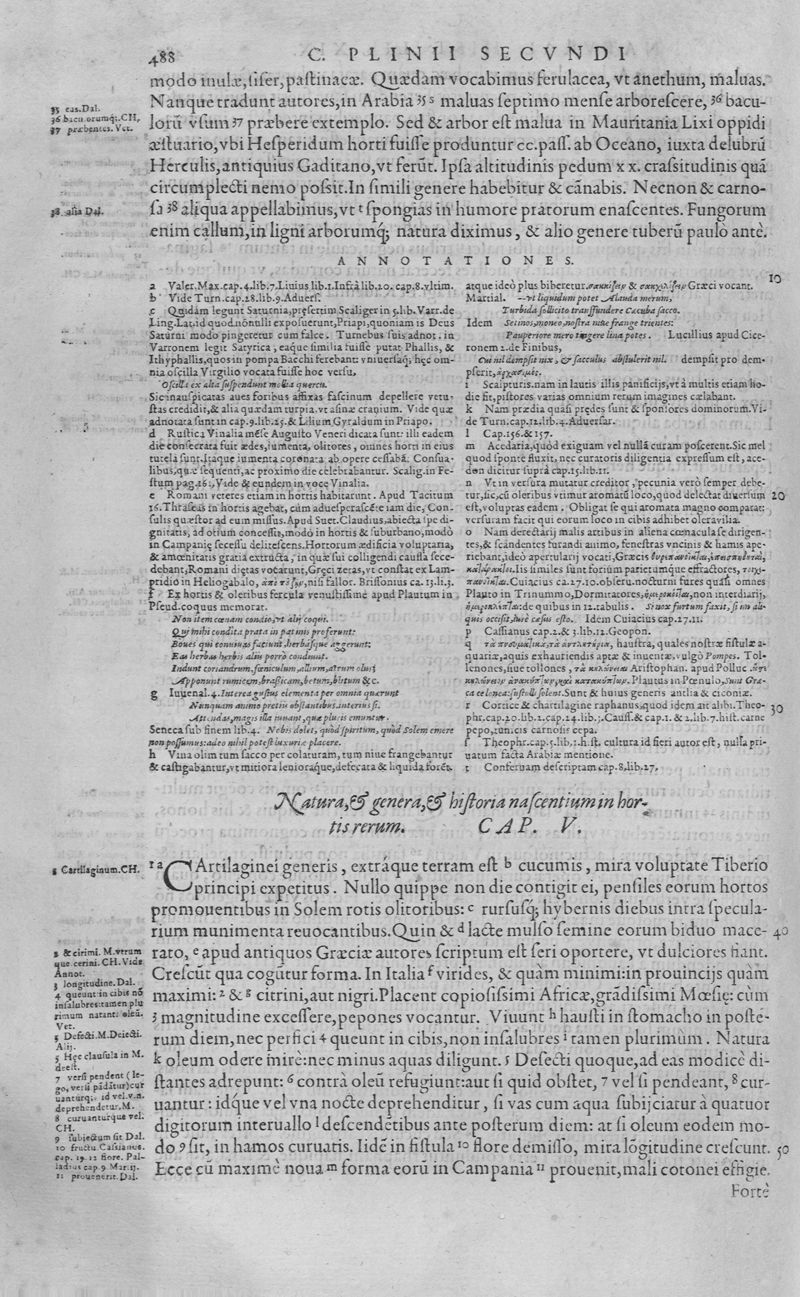 488
C. PLINII SECVNDI
modo inulæ, ſiſer, paſtinacæ. Quædam vocabimus ferulacea, vt anethum, maluas.
Nanque tradunt autores, in Arabia 35 s maluas ſeptimo menſe arboreſcere, 36 bacu-
lorū vſum 37 præbere extemplo. Sed & arbor eſt malua in Mauritania Lixi oppidi
æſtuario, vbi Heſperidum horti fuiſſe produntur cc. paſſ. ab Oceano, iuxta delubrū
Herculis, antiquius Gaditano, vt ferūt. Ipſa altitudinis pedum x x. craſsitudinis quā
circumplecti nemo poſsit. In ſimili genere habebitur & cānabis. Necnon & carno-
ſa 38 aliqua appellabimus, vt t ſpongias in humore pratorum enaſcentes. Fungorum
enim callum, in ligni arborumq; natura diximus, & alio genere tuberū paulò antè.
35 eas. Dal.
36 CH,
37 præbentes. Vet.
38 alia Dal.
ANNOTATIONES.
a Valer. Max. cap. 4. lib. 7. Liuius lib. 1. Infrà lib. 20. cap. 8. vltim.
b Vide Turn. cap. 28. lib. 9. Aduerſ.
c Quidam legunt Saturnia, præſertim Scaliger in 5. lib. Varr. de
Ling. Lat. id quod nonnulli expoſuerunt, Priapi, quoniam is Deus
Saturni modo pingeretur cum falce. Turnebus ſuis adnot. in
Varronem legit Satyrica, eaque ſimilia fuiſſe putat Phallis, &
Ithyphallis, quos in pompa Bacchi ferebant: vniuerſaq; hęc om-
nia oſcilla Virgilio vocata fuiſſe hoc verſu,
Oſcilla ex alta ſuſpendunt mollia quercu.
Sic inauſpicatas aues foribus affixas faſcinum depellere vetu-
ſtas credidit, & alia quædam turpia, vt aſinæ cranium. Vide quæ
adnotata ſunt in cap. 9. lib. 25. & Lilium Gyraldum in Priapo.
d Ruſtica Vinalia mēſe Auguſto Veneri dicata ſunt: illi eadem
die conſecrata fuit ædes, iumenta, olitores, omnes horti in eius
tutela ſunt. Itaque iumenta coronata ab opere ceſſabā. Conſua-
libus, quæ ſequenti, ac proximo die celebrabantur. Scalig. in Fe-
ſtum pag. 161. Vide & eundem in voce Vinalia.
e Romani veteres etiam in hortis habitarunt. Apud Tacitum
16. Thraſeas in hortis agebat, cùm adueſperaſcēte iam die, Con-
ſulis quæſtor ad eum miſſus. Apud Suet. Claudius, abiecta ſpe di-
gnitatis, ad otium conceſſit, modò in hortis & ſuburbano, modò
in Campanię ſeceſſu deliteſcens. Hortorum ædificia voluptaria,
& amœnitatis gratia extructa, in quæ ſui colligendi cauſſa ſece-
debant, Romani diętas vocarunt, Gręci zetas, vt conſtat ex Lam-
pridio in Heliogabalo, niſi fallor. Briſſonius ca. 13. li. 3.
f Ex hortis & oleribus fercula venuſtiſſimè apud Plautum in
Pſeud. coquus memorat.
Non item cœnam condio, vt alij coqui.
Qui mihi condita prata in patinis proferunt:
Boues qui conuiuas faciunt, herbáſque aggerunt:
Eas herbas herbis aliis porrò condiunt.
Indunt coriandrum, fœniculum, allium, atrum olus:
Apponunt rumicem, braſſicam, betam, blitum &c.
g Iuuenal. 4. Interea guſtus elementa per omnia quærunt
Nunquam animo pretiis obſtantibus. interius ſi
Attendas, magis illa iuuant, quæ pluris emuntur.
Seneca ſub finem lib. 4. Nobis dolet, quòd ſpiritum, quòd Solem emere
non poſſumus: adeo nihil poteſt luxuriæ placere.
h Vina olim tum ſacco per colaturam, tum niue frangebantur
& caſtigabantur, vt mitiora lenioraque, defæcata & liquida forēt.
atque ideò plus biberetur. & Græci vocant.
Martial. --vt liquidum potet Alauda merum,
Turbida ſollicito tranſfundere Cæcuba ſacco.
Idem Setinos, moneo, noſtra niue frange trientes:
Pauperiore mero tingere lina potes. Lucillius apud Cice-
ronem 2. de Finibus,
Cui nil dempſit nix, & ſacculus abſtulerit nil. dempſit pro dem-
pſerit,
i Scalpturis. nam in lautis illis panificijs, vt à multis etiam ho-
die fit, piſtores varias omnium rerum imagines cælabant.
k Nam prædia quaſi prędes ſunt & ſponſores dominorum. Vi-
de Turn. cap. 12. lib. 4. Aduerſar.
l Cap. 156. & 157.
m Acedaria, quòd exiguam vel nullā curam poſcerent. Sic mel
quod ſponte fluxit, nec curatoris diligentia expreſſum eſt, ace-
don dicitur ſuprà cap. 15. lib. 11.
n Vt in verſura mutatur creditor, pecunia verò ſemper debe-
tur, ſic, cū oleribus vtimur aromatū loco, quod delectat diuerſum
eſt, voluptas eadem. Obligat ſe qui aromata magno comparat:
verſuram facit qui eorum loco in cibis adhibet oleravilia.
o Nam derectarij malis artibus in aliena cœnacula ſe dirigen-
tes, & ſcandentes furandi animo, feneſtras vncinis & hamis ape-
riebant, ideò apertularij vocati, Græcis
Iis ſimiles ſunt forium parietumque effractores,
Cuiacius ca. 17. 10. obſeru. nocturni fures quaſi omnes
Plauto in Trinummo, Dormitatores, non interdiarij,
de quibus in 12. tabulis. Si nox furtum faxit, ſi im ali-
quis occiſit, iure cæſus eſto. Idem Cuiacius cap. 27.
p Caſſianus cap. 2. & 3. lib. 12. Geopon.
q hauſtra, quales noſtræ fiſtulæ a-
quariæ, aquis exhauriendis aptæ & inuentæ, vulgò Pompes. Tol-
lenones, ſiue tollones, Ariſtophan. apud Polluc.
Plautus in Pœnulo, Sunt & huius generis antlia & ciconiæ.
r Cortice & chartilagine raphanus, quod idem ait alibi. Theo-
phr. cap. 20. lib. 1. cap. 14. lib. 3. Cauſſ. & cap. 1. & 2. lib. 7. hiſt. carne
pepo, tunicis carnoſis cepa.
ſ Theophr. cap. 5. lib. 1. h. ſt. cultura id fieri autor eſt, nulla pri-
uatum facta Arabiæ mentione.
t Conferuam deſcriptam cap. 8. lib. 27.
10
20
30
Natura, & genera, & hiſtoria naſcentium in hor-
tis rerum. CAP. V.
1 a CArtilaginei generis, extráque terram eſt b cucumis, mira voluptate Tiberio
principi expetitus. Nullo quippe non die contigit ei, penſiles eorum hortos
promouentibus in Solem rotis olitoribus: c rurſuſq; hybernis diebus intra ſpecula-
rium munimenta reuocantibus. Quin & d lacte mulſo ſemine eorum biduo mace- 40
rato, e apud antiquos Græciæ autores ſcriptum eſt ſeri oportere, vt dulciores fiant.
Creſcūt qua cogūtur forma. In Italia f virides, & quàm minimi: in prouincijs quàm
maximi: 2 & g citrini, aut nigri. Placent copioſiſsimi Africæ, grādiſsimi Mœſię: cùm
3 magnitudine exceſſere, pepones vocantur. Viuunt h hauſti in ſtomacho in poſte-
rum diem, nec perfici 4 queunt in cibis, non inſalubres i tamen plurimùm. Natura
k oleum odere mirè: nec minus aquas diligunt. 5 Defecti quoque, ad eas modicè di-
ſtantes adrepunt: 6 contrà oleū refugiunt: aut ſi quid obſtet, 7 vel ſi pendeant, 8 cur-
uantur: idque vel vna nocte deprehenditur, ſi vas cum aqua ſubijciatur à quatuor
digitorum interuallo l deſcendētibus ante poſterum diem: at ſi oleum eodem mo-
do 9 ſit, in hamos curuatis. Iidē in fiſtula 10 flore demiſſo, mira lōgitudine creſcunt. 50
Ecce cū maximè noua m forma eorū in Campania 11 prouenit, mali cotonei effigie.
Fortè
1 Cartilaginum. CH.
2 & cirimi. M. vtrum
que cerini. CH. Vide
Annot.
3 longitudine. Dal.
4 queunt in cibis nō
inſalubres: tamen plu
rimum natant: oleū.
Vet.
5 Defecti. M. Deiecti.
Alij.
5 Hęc clauſula in M.
deeſt.
7 verſi pendent (le-
go, verſi pādātur) cur
uanturq; id vel. v. n.
deprehendetur. M.
8 curuanturque vel.
CH.
9 ſubiectum ſit Dal.
10 fructu. Caſsianus.
cap. 19. 12 flore. Pal-
ladius cap. 9. Mar. 13.
11 prouenerit. Dal.